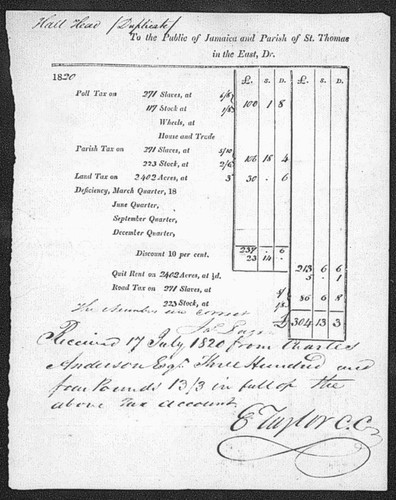 Hall Head (Duplicate)
To the Public of Jamaica and Parish of St. Thomas
in the East, Dr.
1820 £. S. D. £. S. D.
Poll Tax on 271 Slaves, at 5/8
117 Stock at 1/8 100 1 8
Wheels, at
House and Trade
Parish Tax on 271 Slaves, at 5/10
223 Stock, at 2/6 106 18 4
Land Tax on 2402 Acres, at 3 30 . 6
Deficiency, March Quarter, 18
June Quarter,
September Quarter,
December Quarter,
237 . 6
Discount 10 per cent. 23 14 .
213 6 6
Quit Rent on 2402 Acres, at ½d. 5 . 1
Road Tax on 271 Slaves, at
223 Stock, at 86 6 8
The Number are correct £ 304 13 3
Received 17 July 1820 from Charles
Anderson Esqr. Three Hundred and
four Pounds 13/3 in full of the
above Tax account
E Taylor C.C.